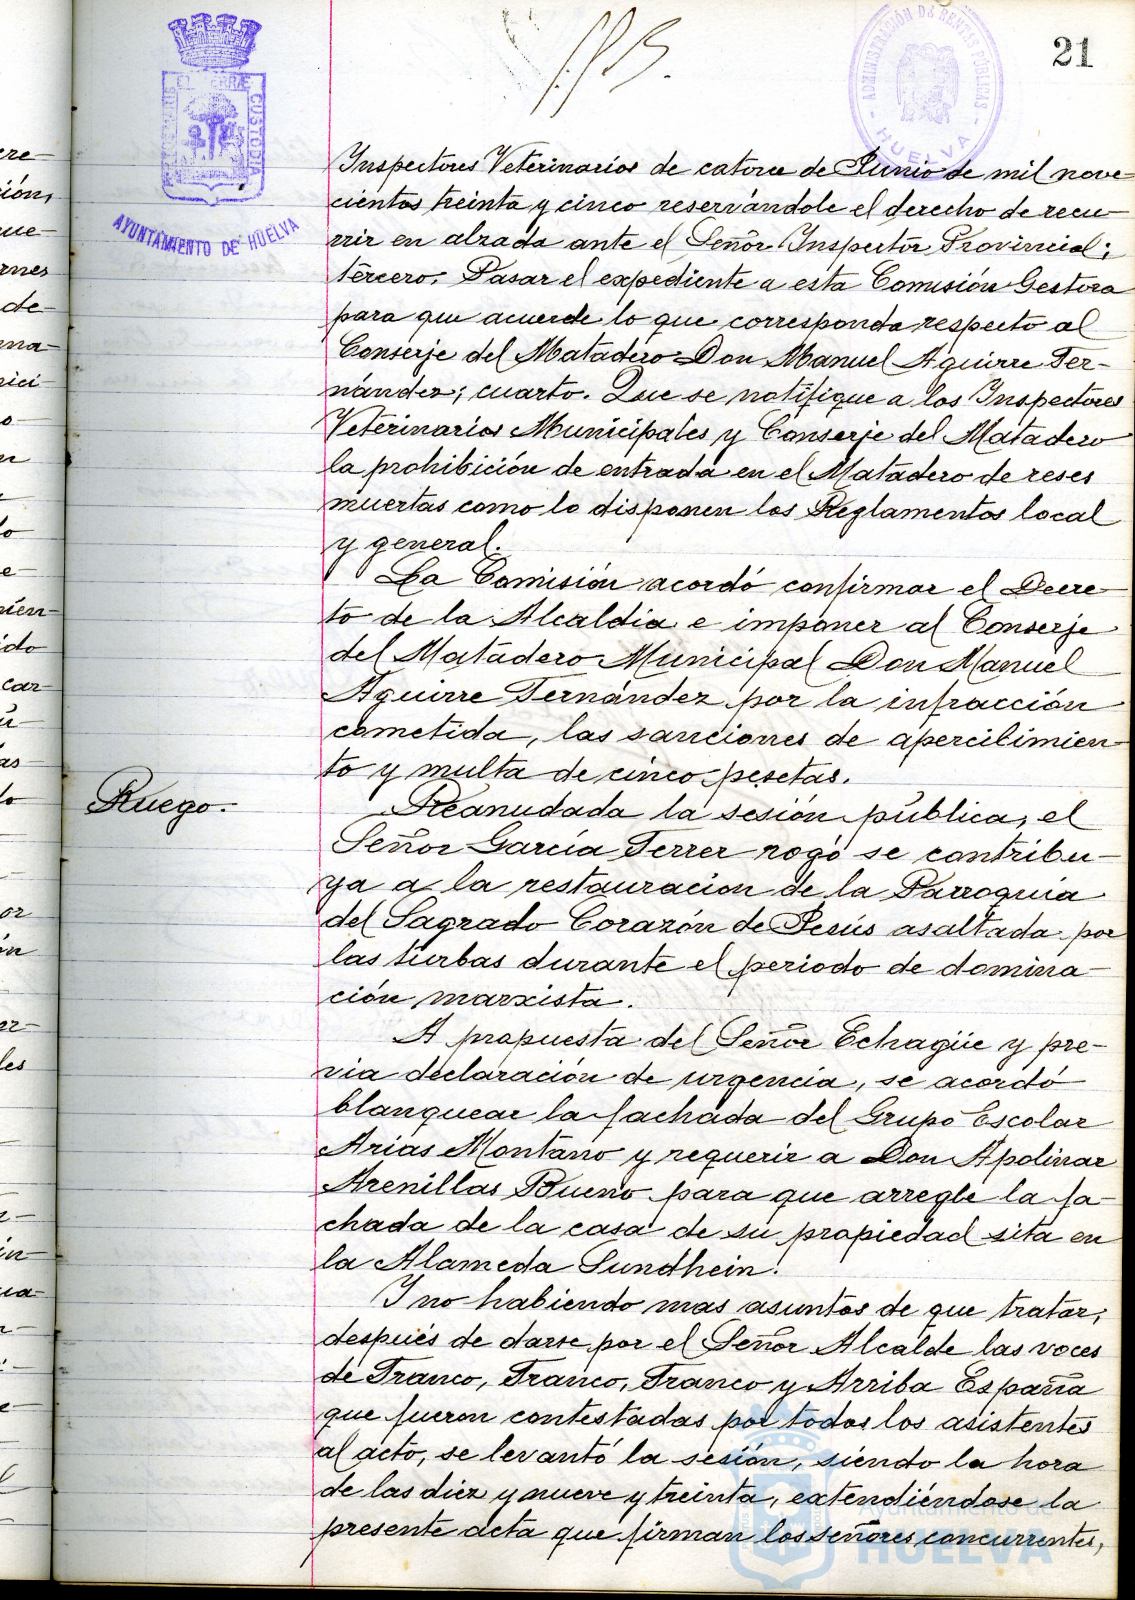 21
ADMINISTRACIÓN DE RENTAS PÚBLICAS
HUELVA
CUSTODIA
AYUNTAMIENTO DE HUELVA
Inspectores Veterinarios de catorce de Junio de mil nove-
cientos treinta y cinco reservándole el derecho de recu-
rrir en alzada ante el Señor Inspector Provincial;
tercero. Pasar el expediente a esta Comisión Gestora
para que acuerde lo que corresponda respecto al
Conserje del Matadero Don Manuel Aguirre Fer-
nández; cuarto. Que se notifique a los Inspectores
Veterinarios Municipales y Conserje del Matadero
la prohibición de entrada en el Matadero de reses
muertas como lo disponen los Reglamentos local
y general.
La Comisión acordó confirmar el Decre-
to de la Alcaldía e imponer al Conserje
del Matadero Municipal Don Manuel
Aguirre Fernández por la infracción
cometida, las sanciones de apercibimien-
to y multa de cinco pesetas.
Ruego.-
Reanudada la sesión pública, el
Señor García Ferrer rogó se contribu-
ya a la restauracion de la Parroquia
del Sagrado Corazón de Jesús asaltada por
las turbas durante el periodo de domina-
ción marxista.
A propuesta del Señor Echagüe y pre-
via declaración de urgencia, se acordó
blanquear la fachada del Grupo Escolar
Arias Montano y requerir a Don Apolinar
Arenillas Bueno para que arregle la fa-
chada de la casa de su propiedad sita en
la Alameda Sundhein.
Y no habiendo mas asuntos de que tratar,
después de darse por el Señor Alcalde las voces
de Franco, Franco, Franco y Arriba España
que fueron contestadas por todos los asistentes
al acto, se levantó la sesión, siendo la hora
de las diez y nueve y treinta, extendiéndose la
presente acta que firman los señores concurrentes,
Ayuntamiento de
HUELVA